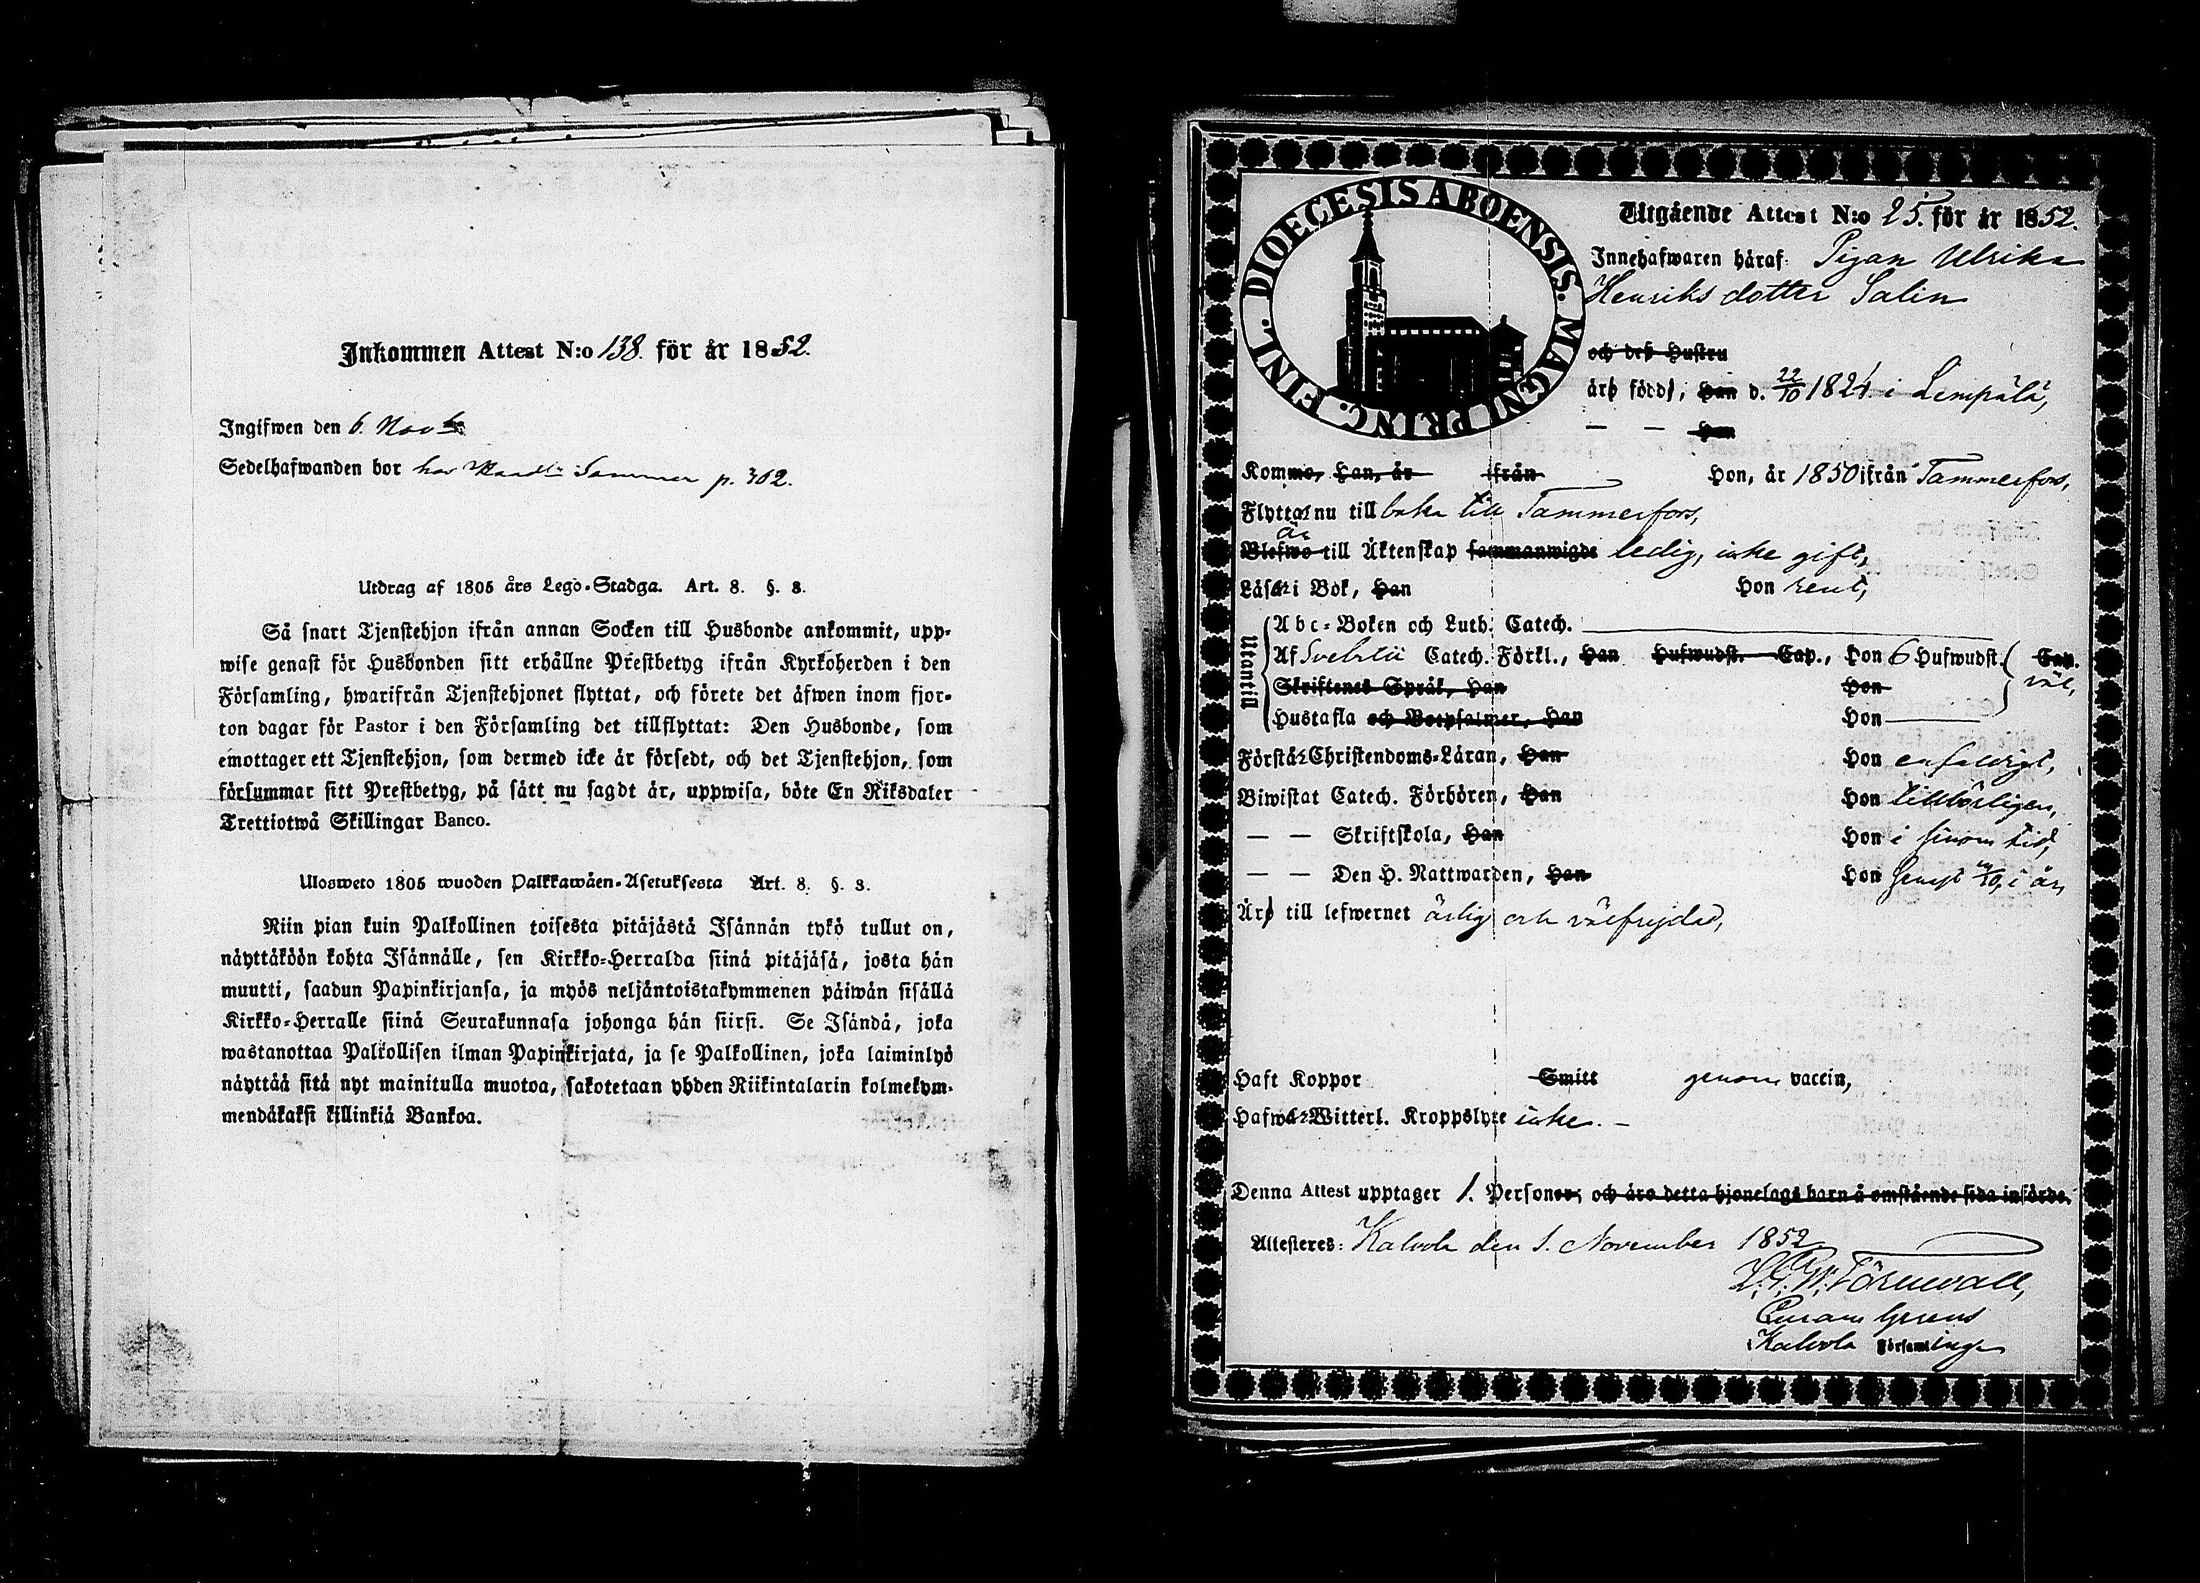 Inkommen Attest N:o 138. för år 1852.
Ingifwen den 6. Nov
Sedelhafwanden bor hos p. 302.
Utdrag af 1805 års Lego-Stadga. Art. 8. §. 8.
Så snart Tjenstehjon ifrån annan Socken till Husbonde ankommit, upp-
wise genast för Husbonden sitt erhållne Prestbetyg ifrån Kyrkoherden i den
Församling, hwarifrån Tjenstehjonet flyttat, och förete det äfwen inom fjor-
ton dagar för Pastor i den Församling det tillflyttat: Den Husbonde, som
emottager ett Tjenstehjon, som dermed icke är försedt, och det Tjenstehjon, som
försummar sitt Prestbetyg, på sätt nu sagdt är, uppwisa, böte En Riksdaler
Trettiotwå Skillingar Banco.
Ulosweto 1805 wuoden Palkkawäen-Asetuksesta Art. 8. §. 8.
Niin pian kuin Palkollinen toisesta pitäjästä Isännän tykö tullut on,
näyttäköön kohta Isännälle, sen Kirkko-Herralda siinä pitäjäsä, josta hän
muutti, saadun Papinkirjansa, ja myös neljäntoistakymmenen päiwän sisällä
Kirkko-Herralle siinä Seurakunnasa johonga hän siirsi. Se Isändä, joka
wastanottaa Palkollisen ilman Papinkirjata, ja se Palkollinen, joka laiminlyö
näyttää sitä nyt mainitulla muotoa, sakotetaan yhden Riikintalarin kolmekym-
mendäkaksi killinkiä Bankoa.
DIOECESIS ABOENSIS. MAGNI PRINC. FINL.
Utgående Attest N:o 25. för år 1852.
Innehafwaren häraf: Pigan Ulrika
Henriks dotter Salin
och deß Hustru
äro födde, Han d. 22/10 1824 i Lempälä,
— — Hon
Komme, Han, år ifrån Hon, år 1850 ifrån Tammerfors,
Flyttat nu till baka till Tammerfors,
är
Blefwo till Äktenskap sammanwigde ledig, icke gift,
Läser i Bok, Han Hon rent,
Utantill
Abc-Boken och Luth. Catech.
Af Svebelii Catech. Förkl., Han Hufwudst. Cap., Hon 6 Hufwudst. Cap.
väl,
Skriftenes Språk, Han Hon
Hustafla och Botpsalmer, Han Hon
Förstår Christendoms-Läran, Han Hon enfaldigt,
Biwistat Catech. Förhören, Han Hon tillbörligen,
— — Skriftskola, Han Hon i sinom tid,
— — Den H. Nattwarden, Han Hon senast /10 i år,
Äro till lefwernet ärlig och välfrejdad,
Haft Koppor Smitt genom vaccin,
Hafwer Witterl. Kroppslyte icke. —
Denna Attest upptager 1. Personer, och äro detta hjonelags barn å omstående sida införde.
Attesteres: Kalvola den 1. November 1852
H. G. W. Törnwall,
Curam Gerens
Kalvola Församlings